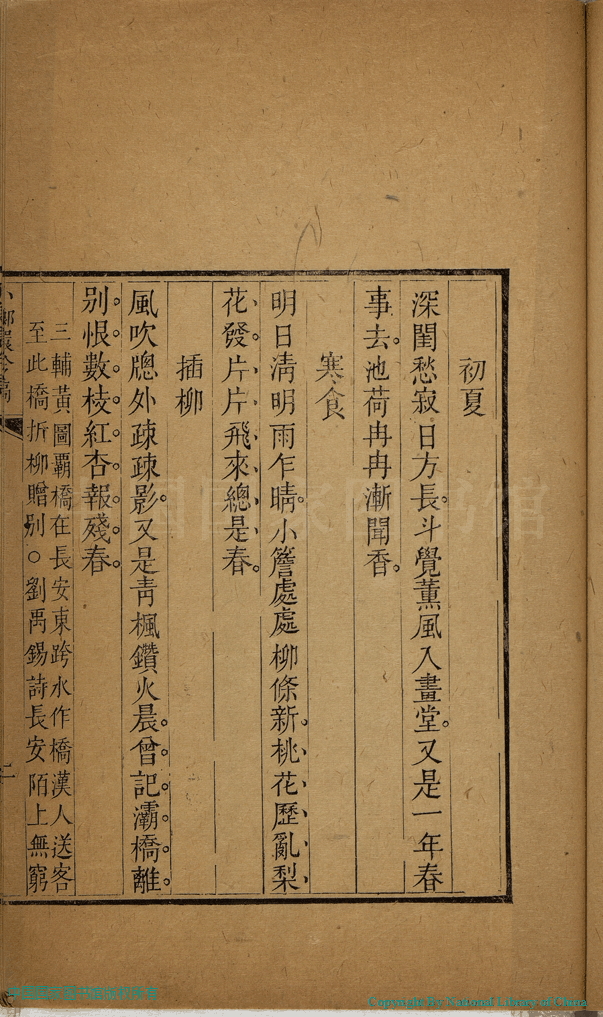 初夏
深閨愁寂日方長。斗覺薰風入畫堂。又是一年春
事去。池荷冉冉漸聞香。
寒食
明日淸明雨乍晴。小簷處處柳條新。桃花歷亂梨
花發。片片飛來總是春。
插柳
風吹牕外疎疎影。又是青楓鑽火晨。曾記灞橋離
別恨。數枝紅杏報殘春。
三輔黃圖霸橋在長安東跨水作橋漢人送客
至此橋折柳贈別○劉禹錫詩長安陌上無窮
Copyright By National Library of China